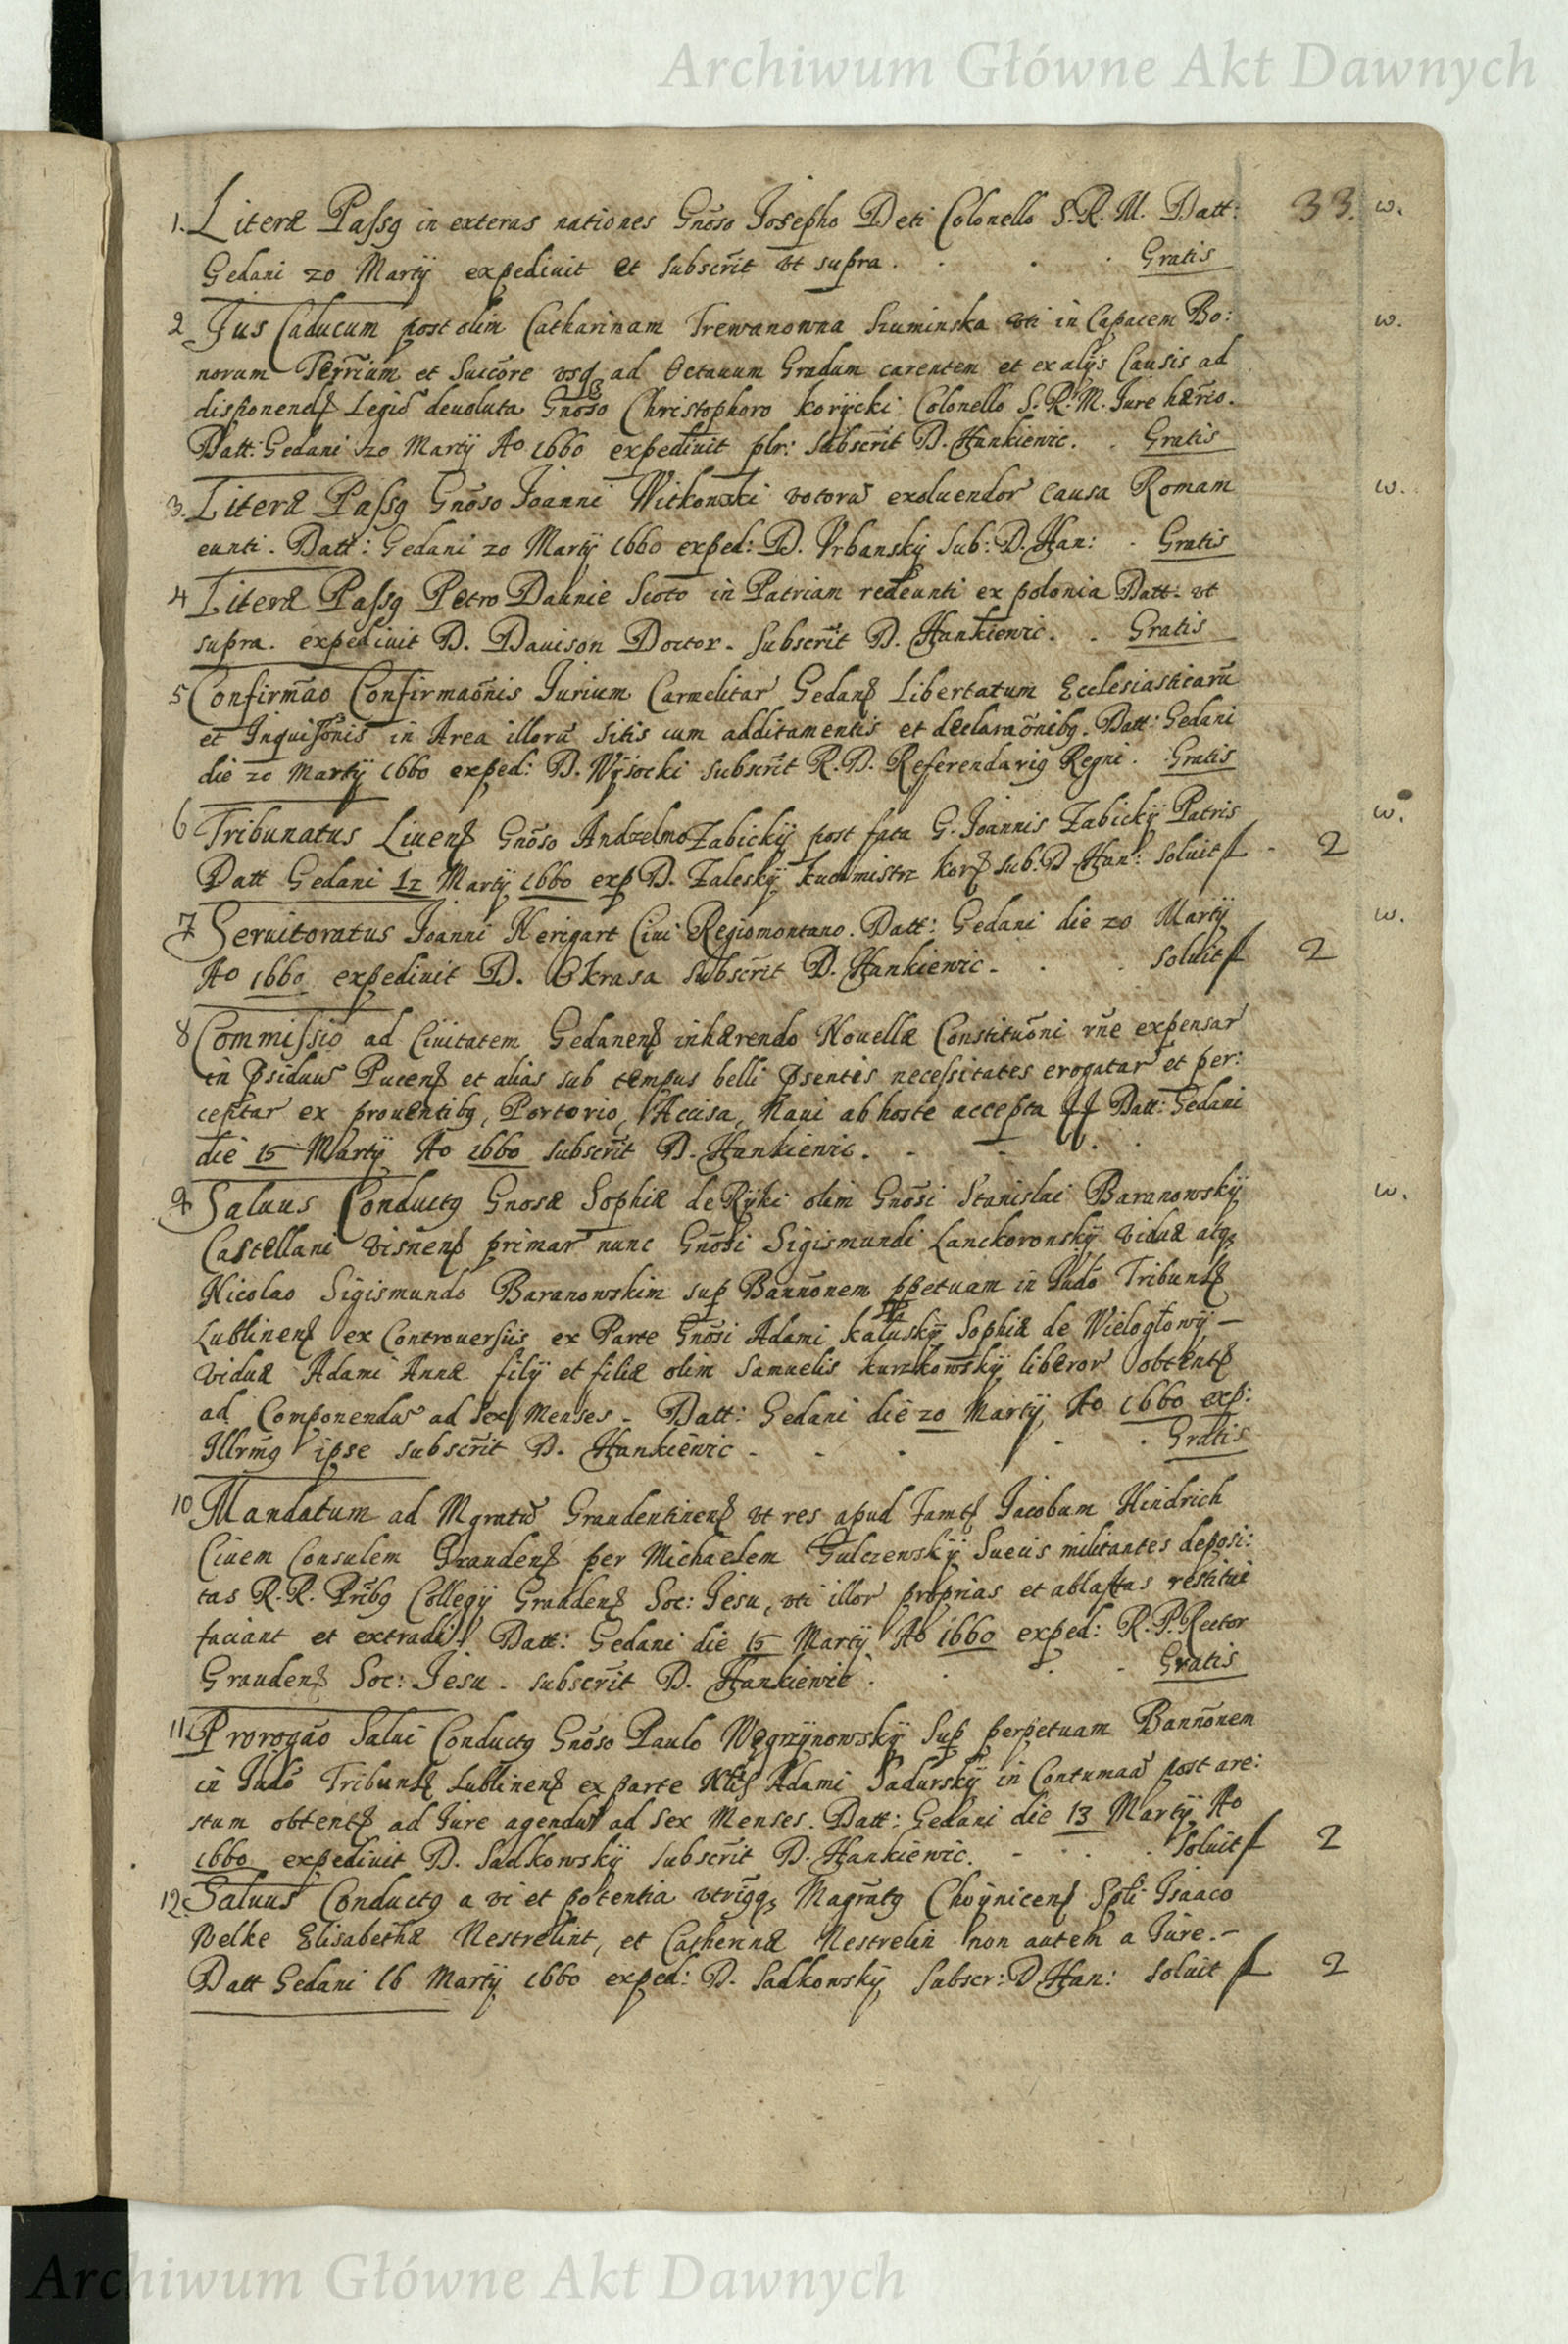 Archiwum Główne Akt Dawnych
33.
1. Literæ Passg in exteras nationes Gnoso Josepho Deti Colonello S.R.M. Datt: w.
Gedani 20 Martÿ expediuit et subscrit vt supra. Gratis
2 Jus Caducum post olim Catharinam Trewanowna Szuminska vti in Capacem Bo: w.
norum Terrium et Succore vsq ad Octauum Gradum carentem et ex alÿs Causis ad
disponend Legio deuoluta Gnoso Christophoro Korÿcki Colonello S.R.M. Jure hærio.
Datt: Gedani 20 Martÿ Ao 1660 expediuit plr: subscrit D. Hankiewic. Gratis
3. Literæ Passg Gnoso Joanni Witkowski votoru exoluendor causa Romam w.
eunti. Datt: Gedani 20 Martÿ 1660 exped: D. Vrbanskÿ Sub: D. Han: Gratis
4 Literæ Passg Petro Daunie Scoto in Patriam redeunti ex polonia Datt. vt
supra. expediuit D. Dauison Doctor. Subscrit D. Hankiewic. Gratis
5 Confirmao Confirmaonis Jurium Carmelitar Gedan Libertatum Ecclesiasticaru
et Inquisonis in Area illoru sitis cum additamentis et declaraonibg. Datt: Gedani
die 20 Martÿ 1660 exped: D. Wÿsocki subscrit R.D. Referendarig Regni. Gratis
6 Tribunatus Liuen Gnoso Andzelmo Zabickÿ post fata G. Joannis Zabickÿ Patris w.
Datt Gedani 12 Martÿ 1660 exp D. Zaleskÿ kuchmistrz kor sub. D Han: soluit f 2
7 Seruitoratus Joanni Herigart Ciui Regiomontano. Datt: Gedani die 20 Martÿ w.
Ao 1660 expediuit D. Okrasa subscrit D. Hankiewic. soluit f 2
8 Commissio ad Ciuitatem Gedanen inhærendo Nouellæ Constituoni rne expensar
in psidiu Pucen et alias sub tempus belli psentis necessitates erogatar et per:
ceptar ex prouentibg, Portorio, Accisa, Naui ab hoste accepta Datt: Gedani
die 15 Martÿ Ao 1660 subscrit D. Hankiewic.
9 Saluus Conductg Gnosæ Sophiæ de Rÿki olim Gnosi Stanislai Baranowskÿ w.
Castellani visnen primar nunc Gnosi Sigismundi Lanckoronskÿ viduæ atq
Nicolao Sigismundo Baranowskim sup Bannonem ppetuam in Judo Tribunl
Lublinen ex Controuersÿs ex Parte Gnosi Adami kaluskÿ Sophiæ de Wielogłowÿ
viduæ Adami Annæ filÿ et filiæ olim Samuelis kurzkowskÿ liberor obtent
ad Componendu ad sex Menses. Datt: Gedani die 20 Martÿ Ao 1660 exp:
Illrmg ipse subscrit D. Hankiewic Gratis
10 Mandatum ad Mgratu Graudentinen vt res apud Famt Jacobum Hindrich
Ciuem Consulem Grauden per Michaelem Gulczewskÿ Suecis militantes deposi:
tas R.R. Pribg Collegÿ Grauden Soc: Jesu, vti illor proprias et ablatas restitui
faciant et extradi. Datt: Gedani die 15 Martÿ Ao 1660 exped: R.P. Rector
Grauden Soc: Jesu. subscrit D. Hankiewic. Gratis
11 Prorogao Salui Conductg Gnoso Paulo Węgrzÿnowskÿ Sup perpetuam Bannonem
in Judo Tribunl Lublinen ex parte Adami Sadurskÿ in Contumaa post are:
stum obtent ad Jure agendu ad sex Menses. Datt: Gedani die 13 Martÿ Ao
1660 expediuit D. Sadkowskÿ subscrit D. Hankiewic. soluit f 2
12. Saluus Conductg a vi et potentia vtrigq Magratg Choÿnicen Spli Isaaco
Velke Elisabethæ Nestrelint, et Catherinæ Nestrelin non autem a Jure.
Datt Gedani 16 Martÿ 1660 exped: D. Sadkowskÿ subscr: D Han: soluit f 2
Archiwum Główne Akt Dawnych